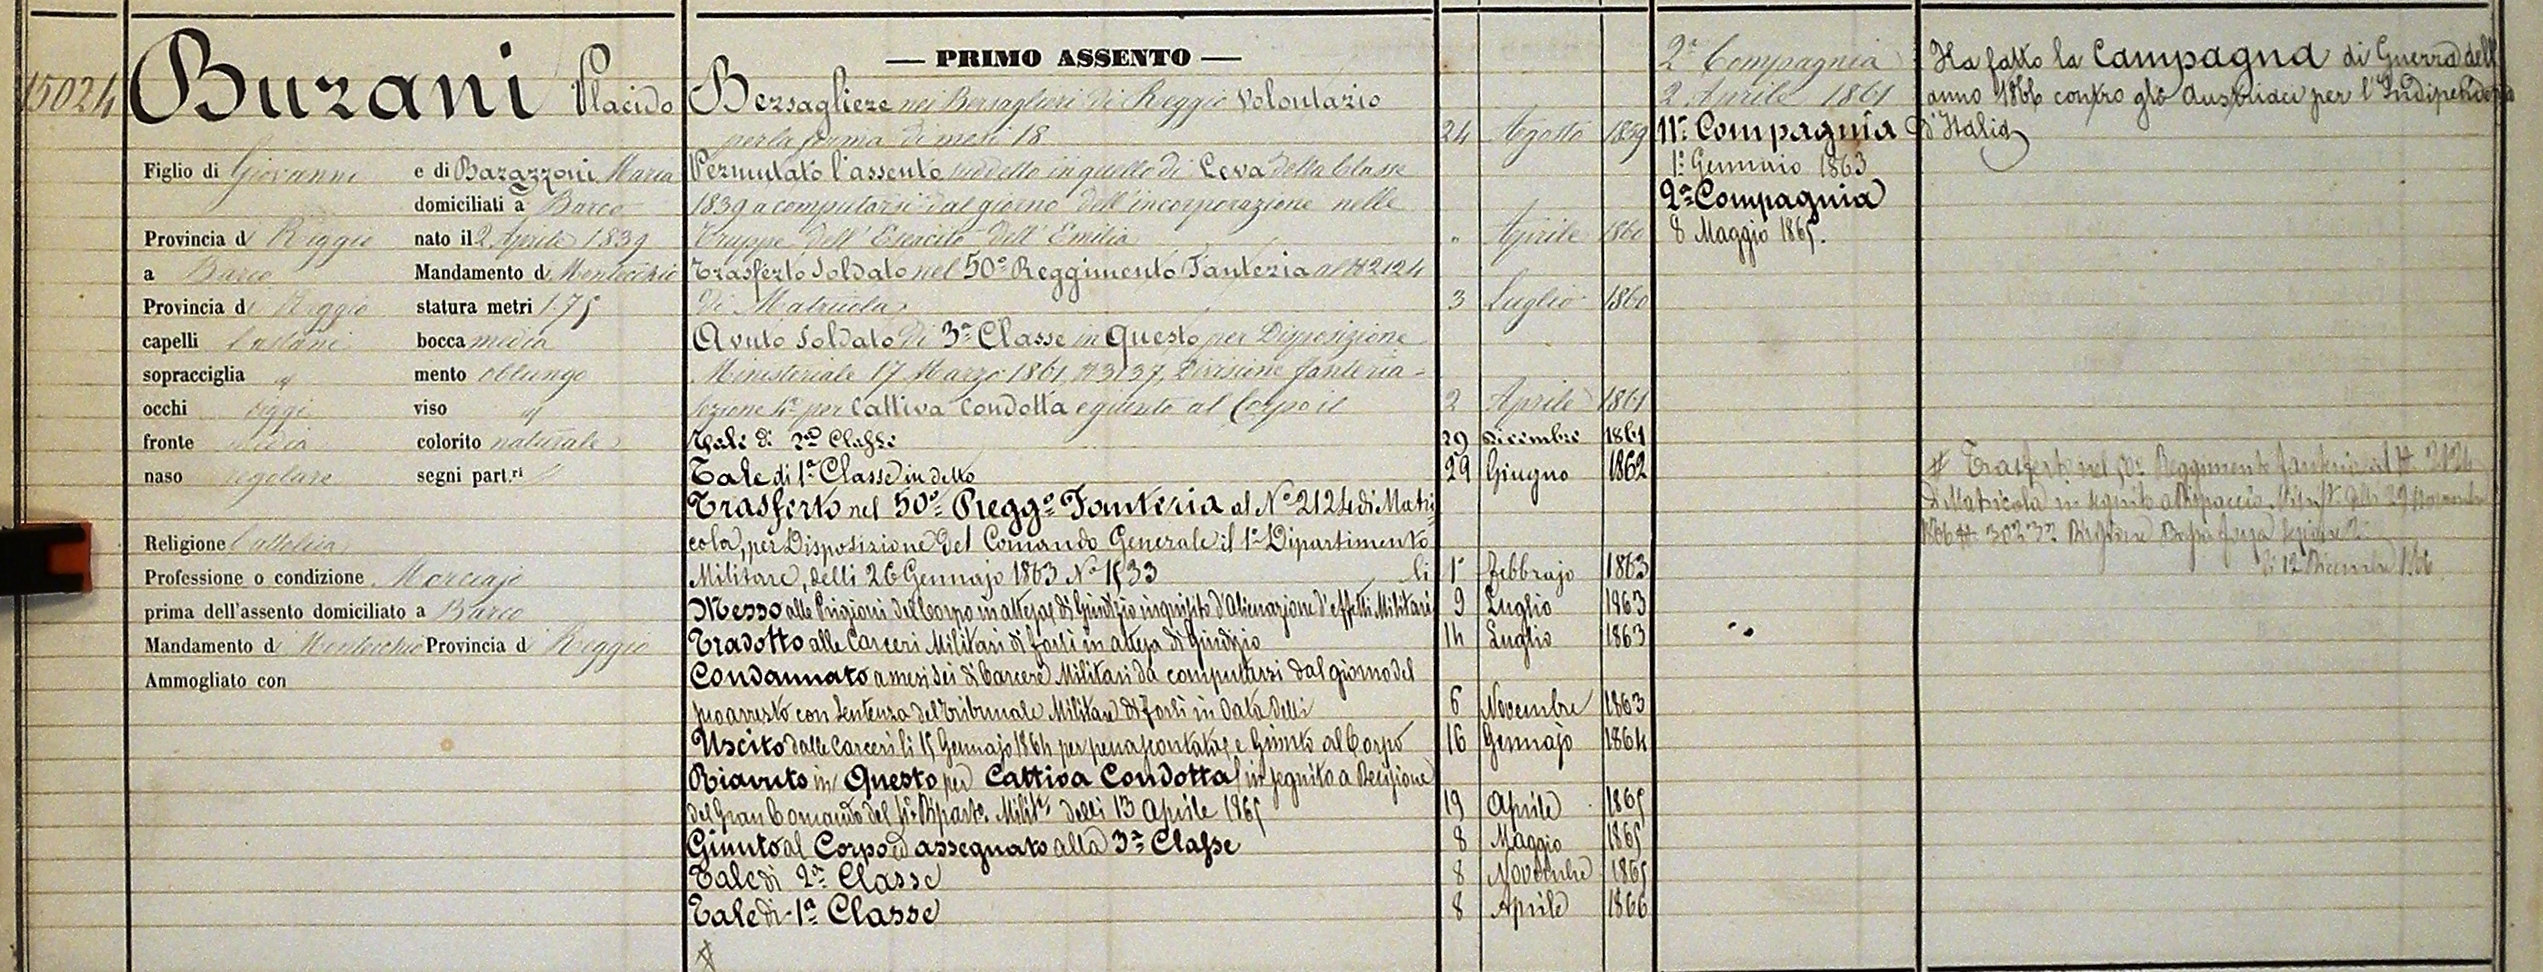 15024
Burani Placido
Figlio di Giovanni e di Barazzoni Maria
domiciliati a Barco
Provincia di Reggio nato il 2 Aprile 1839
a Barco Mandamento di Montecchio
Provincia di Reggio statura metri 1.75
capelli Castani bocca media
sopracciglia " mento oblungo
occhi bigi viso "
fronte media colorito naturale
naso regolare segni part.ri //
Religione Cattolica
Professione o condizione Merciajo
prima dell'assento domiciliato a Barco
Mandamento di Montecchio Provincia di Reggio
Ammogliato con
— PRIMO ASSENTO —
Bersagliere nei Bersaglieri di Reggio Volontario
per la ferma di mesi 18 24 Agosto 1859
Permutato l'assento suddetto in quello di Leva della Classe
1839 a computarsi dal giorno dell'incorporazione nelle
Truppe dell'Esercito dell'Emilia " Aprile 1860
Trasferto Soldato nel 50° Reggimento Fanteria al N 2124
di Matricola 3 Luglio 1860
Avuto Soldato di 3a Classe in Questo per Disposizione
Ministeriale 17 Marzo 1861, N 3137, Divisione Fanteria
Sezione 4a per Cattiva Condotta e giunto al Corpo il 2 Aprile 1861
Tale di 2a Classe 29 Dicembre 1861
Tale di 1a Classe in detto 29 Giugno 1862
Trasferto nel 50° Regg° Fanteria al N° 2124 di Matri
cola, per Disposizione del Comando Generale il 1° Dipartimento
Militare, delli 26 Gennajo 1863 N° 1533 li 1° Febbrajo 1863
Messo alle Prigioni del Corpo in attesa di Giudizio inquisito d'Alienazione d'effetti Militari 9 Luglio 1863
Tradotto alle Carceri Militari di Forlì in attesa di Giudizio 14 Luglio 1863
Condannato a mesi sei di Carcere Militari da computarsi dal giorno del
suo arresto con Sentenza del Tribunale Militare di Forlì in data delli 6 Novembre 1863
Uscito dalle Carceri li 15 Gennajo 1864 per pena scontata, e Giunto al Corpo 16 Gennajo 1864
Riavuto in Questo per Cattiva Condotta in seguito a Decisione
del Gran Comando del Dipart.° Milit.e delli 13 Aprile 1865 19 Aprile 1865
Giunto al Corpo ed assegnato alla 3a Classe 8 Maggio 1865
Tale di 2a Classe 8 Novembre 1865
Tale di 1a Classe 8 Aprile 1866
#
2a Compagnia
2 Aprile 1861
11a Compagnia
1° Gennaio 1863
2a Compagnia
8 Maggio 1865.
Ha fatto la Campagna di Guerra dell'
anno 1866 contro gli Austriaci per l'Indipendenza
d'Italia
# Trasferto nel 50° Reggimento Fanteria al N 2124
di Matricola in seguito a Dispaccio delli 29 Novembre
1866 N 3023 Divisione Bassa forza Sezione 2a
li 12 Dicembre 1866